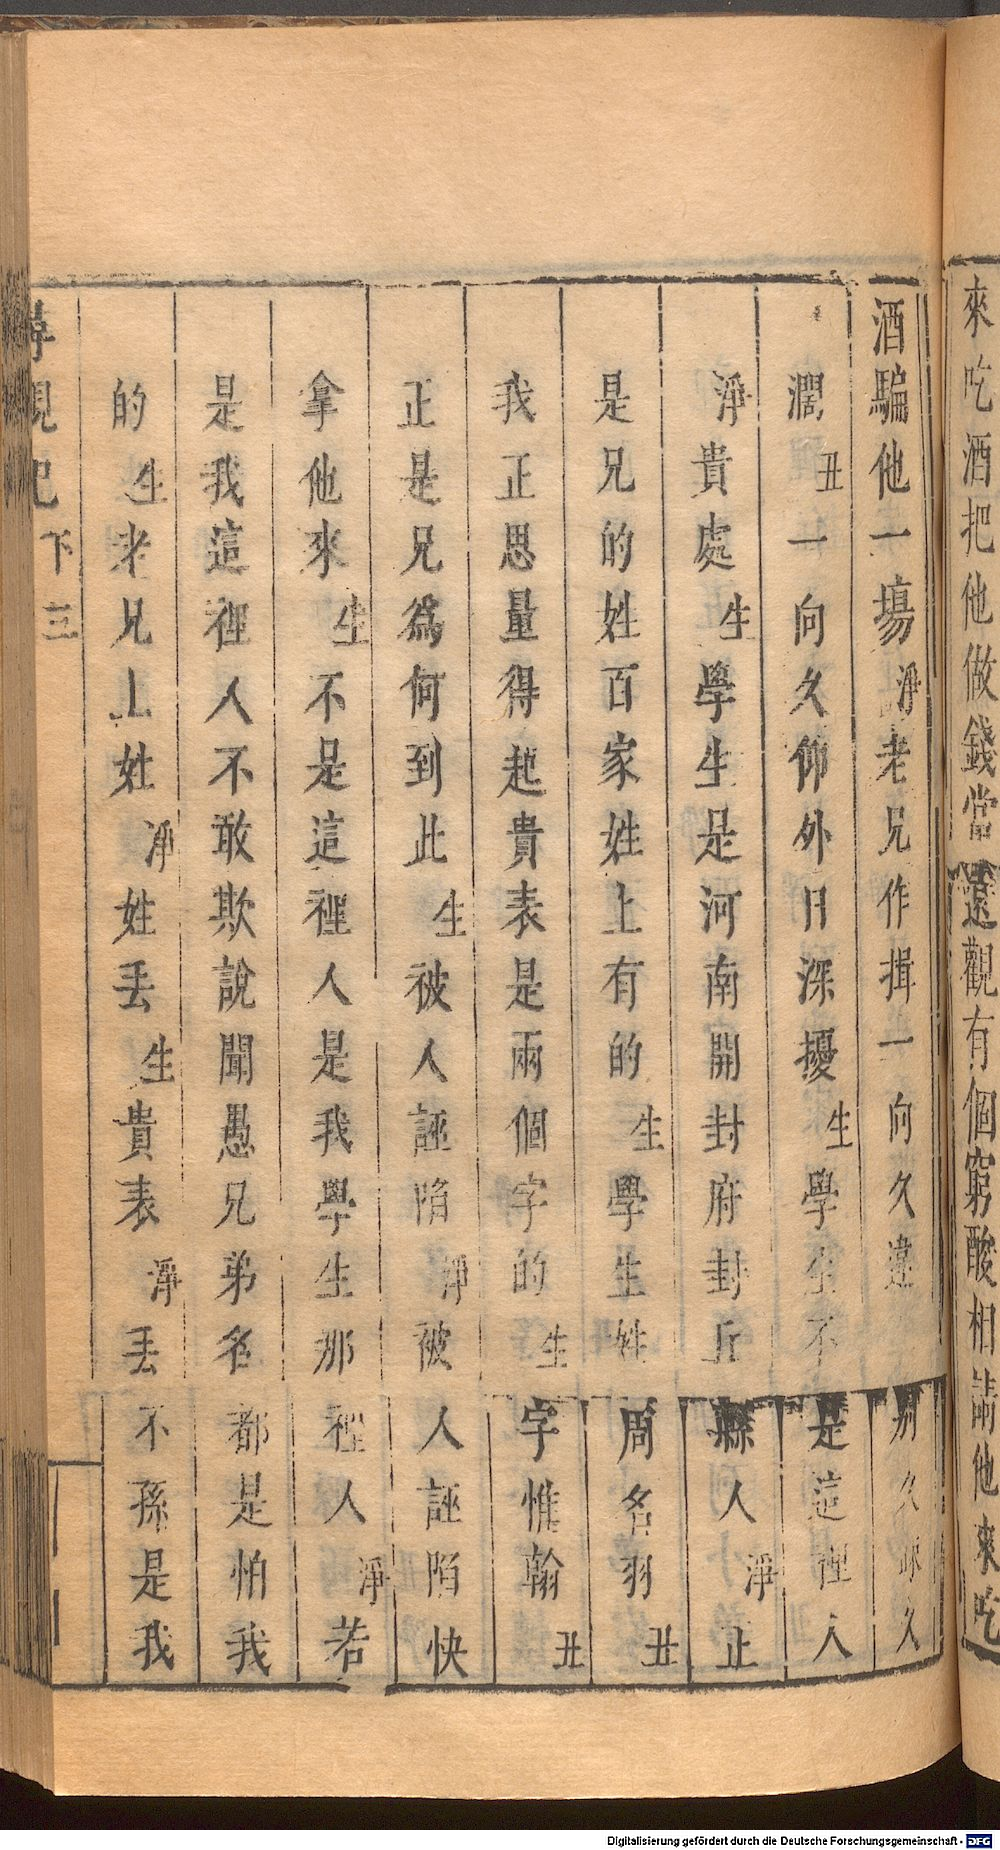 來吃酒把他做錢當還觀有個窮酸相請他來吃
酒騙他一塲淨老兄作揖一向久違別久疎久
濶丑一向久仰外日深擾生學生不是這裡人
淨貴處生學生是河南開封府封丘縣人淨止
是兄的姓百家姓上有的生學生姓周名羽丑
我正思量得起貴表是兩個字的生字惟翰丑
正是兄爲何到此生被人誣陷淨被人誣陷快
拿他來生不是這裡人是我學生那裡人淨若
是我這裡人不敢欺說聞愚兄弟名都是怕我
的生老兄上姓淨姓丟生貴表淨丟不孫是我
尋親記下三
Digitalisierung gefördert durch die Deutsche Forschungsgemeinschaft - DFG